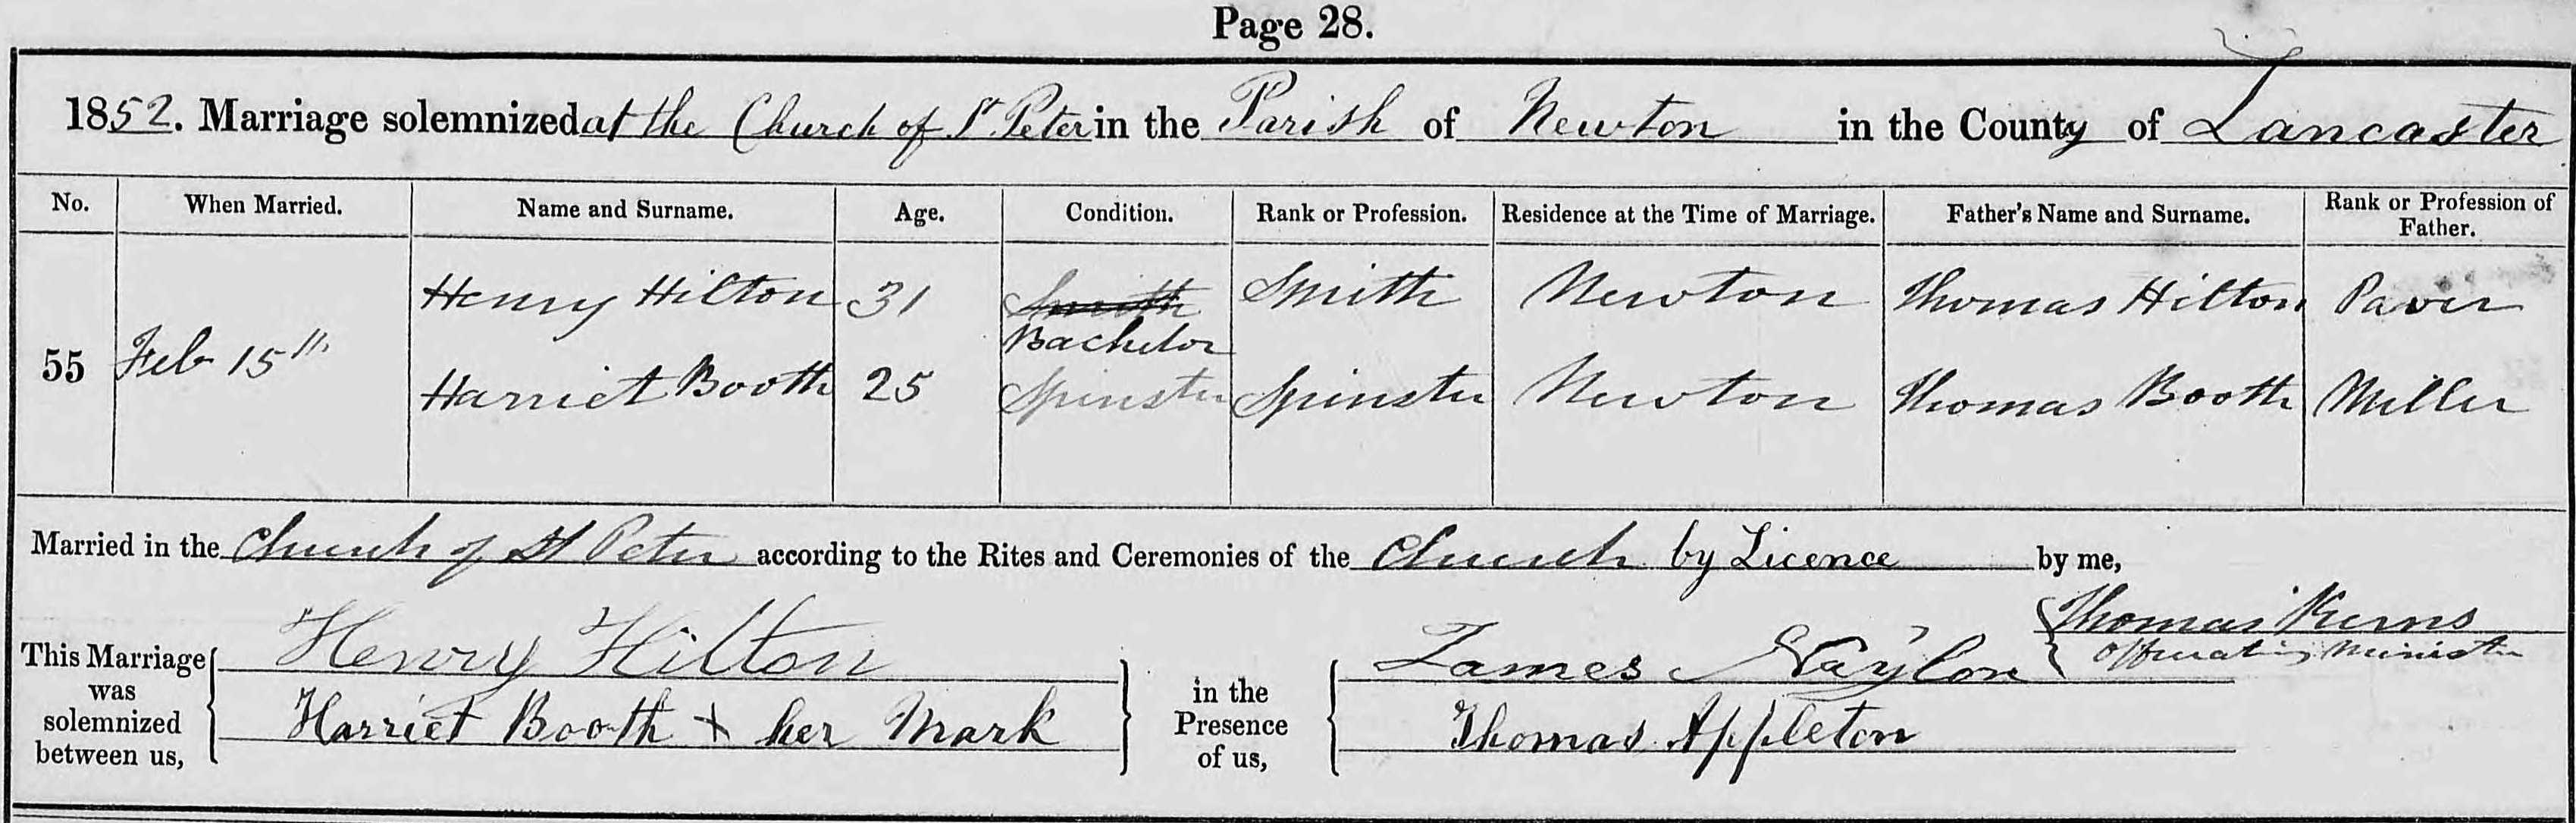 Page 28.
1852. Marriage solemnized at the Church of St. Peter in the Parish of Newton in the County of Lancaster
No. When Married. Name and Surname. Age. Condition. Rank or Profession. Residence at the Time of Marriage. Father's Name and Surname. Rank or Profession of Father.
Henry Hilton 31 Smith Smith Newton Thomas Hilton Paver
Bachelor
55 Feb 15th Harriet Booth 25 Spinster Spinster Newton Thomas Booth Miller
Married in the Church of St Peter according to the Rites and Ceremonies of the Church by Licence by me,
Thomas Kerns
Officiating Minister
This Marriage was solemnized between us,
Henry Hilton
Harriet Booth + her Mark
in the Presence of us,
James Naylor
Thomas Appleton